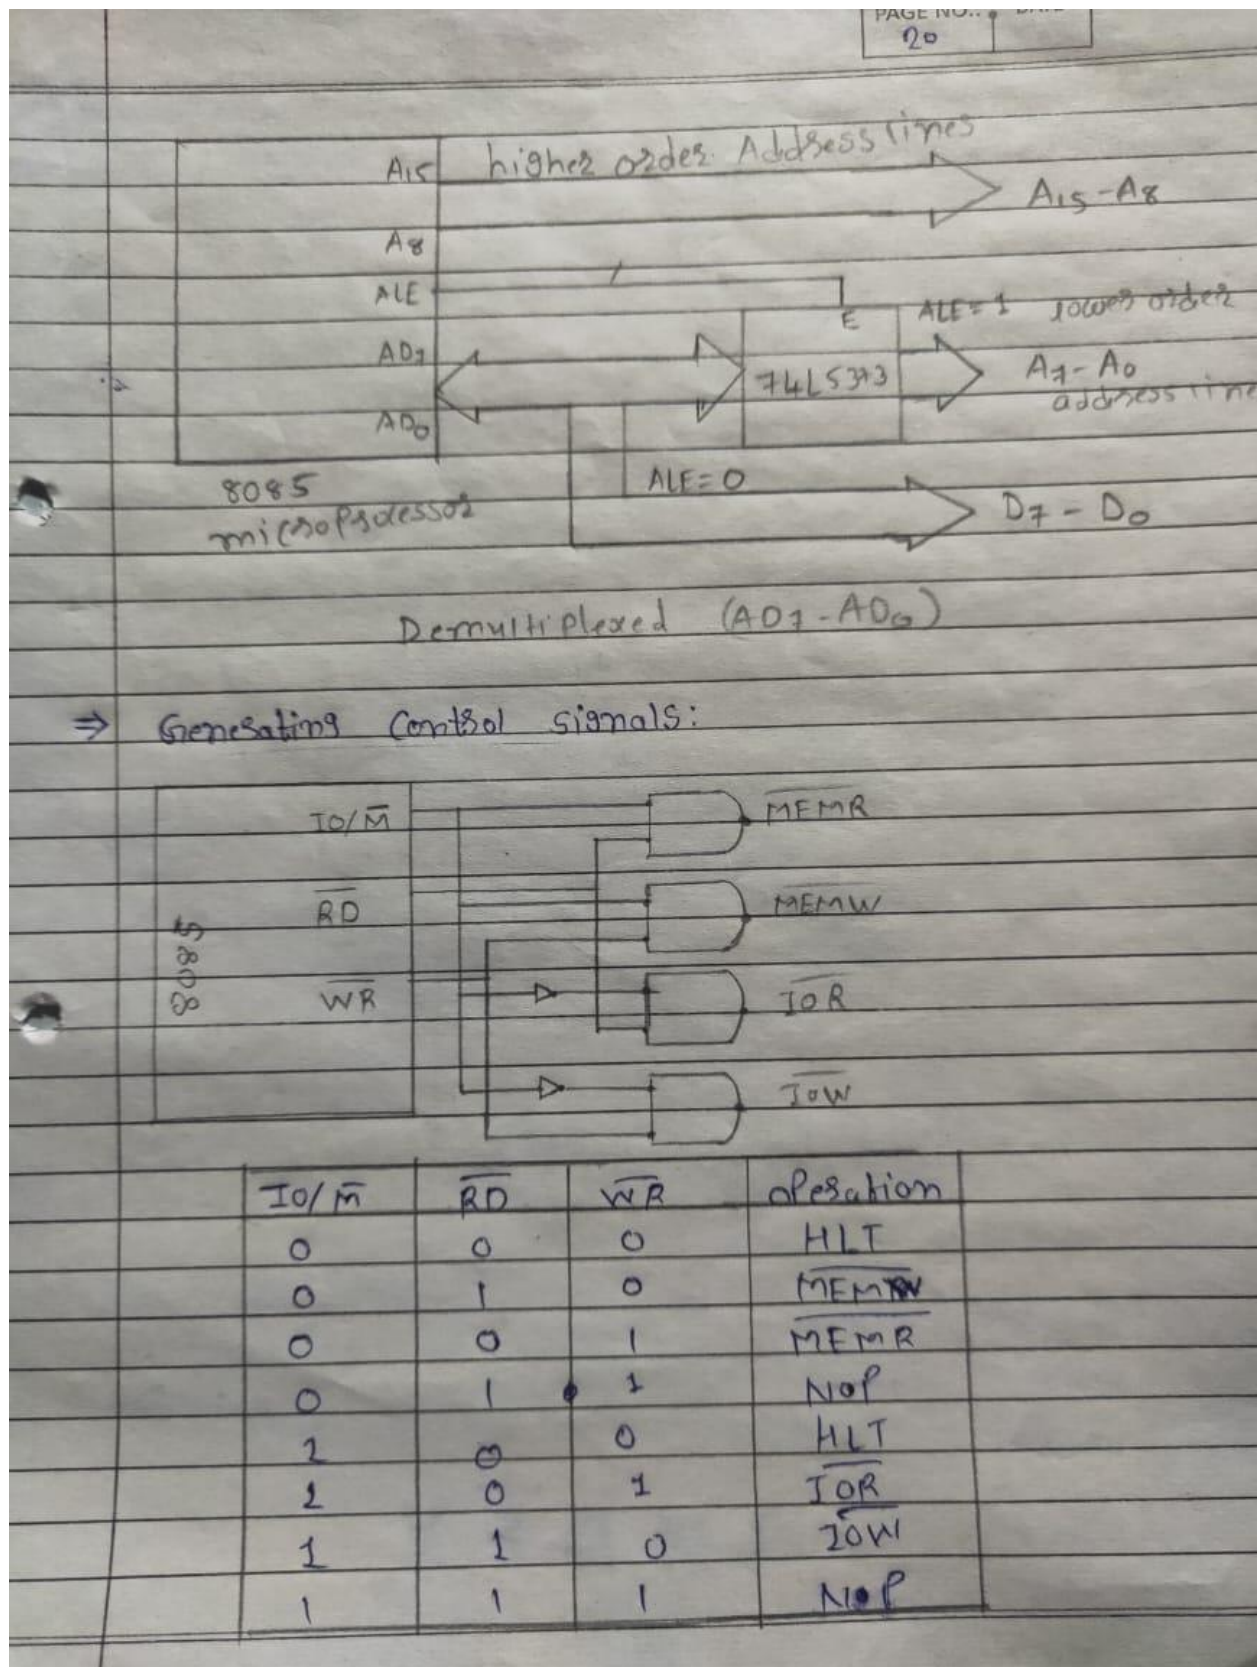 PAGE NO.:
20
A15 higher order Address lines
A15-A8
A8
ALE
E ALE=1 lower order
AD7
74LS373 A7-A0
address line
AD0
8085 ALE=0
microprocessor D7-D0
Demultiplexed (AD7-AD0)
⇒ Generating Control signals:
IO/M̅ M̅E̅M̅R̅
R̅D̅ M̅E̅M̅W̅
8085
W̅R̅ I̅O̅R̅
I̅O̅W̅
IO/M̅ R̅D̅ W̅R̅ operation
0 0 0 HLT
0 1 0 M̅E̅M̅W̅
0 0 1 M̅E̅M̅R̅
0 1 1 NOP
1 0 0 HLT
1 0 1 I̅O̅R̅
1 1 0 I̅O̅W̅
1 1 1 NOP